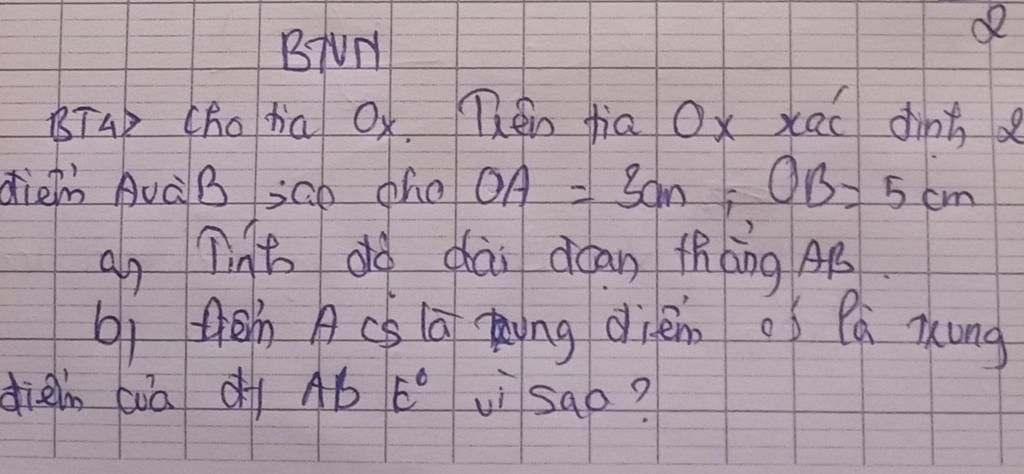 2
BTVN
BT4> Cho tia Ox. Trên tia Ox xác định 2
điểm A và B sao cho OA = 3cm ; OB = 5 cm
a, Tính độ dài đoạn thẳng AB.
b, Điểm A có là trung điểm có là trung
điểm của đt AB k° vì sao?